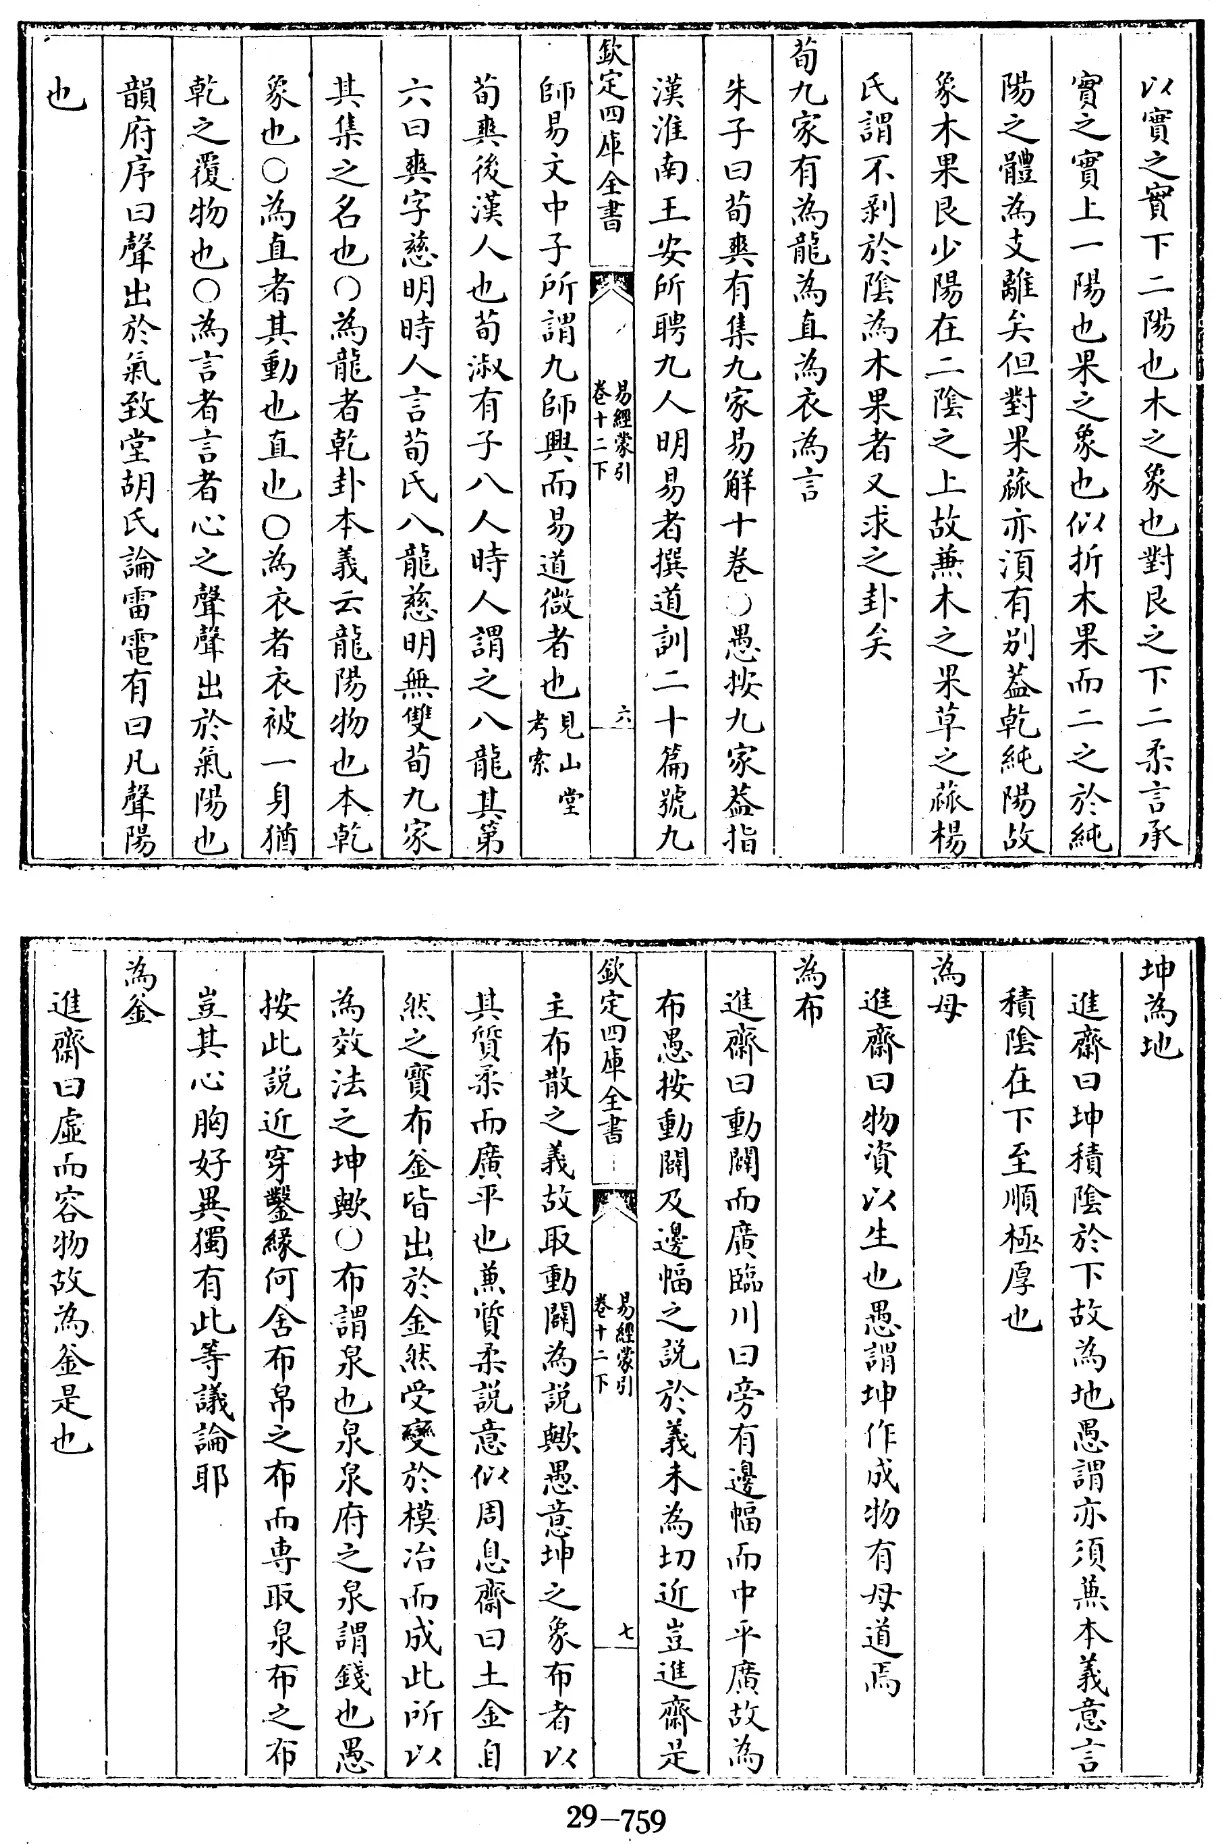 以實之實下二陽也木之象也對艮之下二柔言承
實之實上一陽也果之象也似折木果而二之於純
陽之體為支離矣但對果蓏亦須有别葢乾純陽故
象木果艮少陽在二陰之上故兼木之果草之蓏楊
氏謂不剥於陰為木果者又求之卦矣
荀九家有為龍為直為衣為言
朱子曰荀爽有集九家易解十卷○愚按九家葢指
漢淮南王安所聘九人明易者撰道訓二十篇號九
欽定四庫全書
易經蒙引
卷十二下
六
師易文中子所謂九師興而易道微者也見山堂考索
荀爽後漢人也荀淑有子八人時人謂之八龍其第
六曰爽字慈明時人言荀氏八龍慈明無雙荀九家
其集之名也○為龍者乾卦本義云龍陽物也本乾
象也○為直者其動也直也○為衣者衣被一身猶
乾之覆物也○為言者言者心之聲聲出於氣陽也
韻府序曰聲出於氣致堂胡氏論雷電有曰凡聲陽
也
坤為地
進齋曰坤積陰於下故為地愚謂亦須兼本義意言
積陰在下至順極厚也
為母
進齋曰物資以生也愚謂坤作成物有母道焉
為布
進齋曰動闢而廣臨川曰旁有邊幅而中平廣故為
布愚按動闢及邊幅之説於義未為切近豈進齋是
欽定四庫全書
易經蒙引
卷十二下
七
主布散之義故取動闢為説歟愚意坤之象布者以
其質柔而廣平也兼質柔説意似周息齋曰土金自
然之寳布釜皆出於金然受變於模冶而成此所以
為效法之坤歟○布謂泉也泉泉府之泉謂錢也愚
按此説近穿鑿緣何舍布帛之布而専取泉布之布
豈其心胸好異獨有此等議論耶
為釜
進齋曰虛而容物故為釜是也
29-759